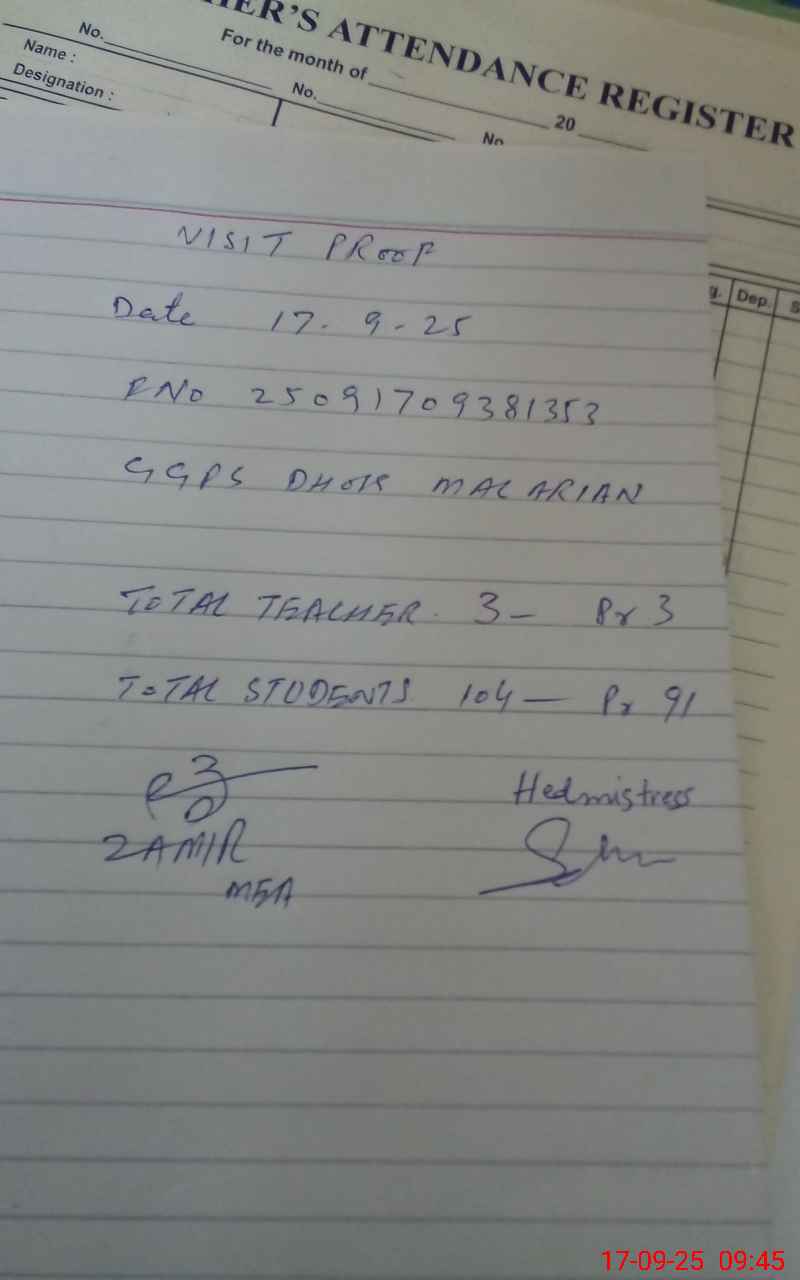 HER'S ATTENDANCE REGISTER
For the month of 20
No.
Name :
Designation :
No.
No
g. Dep. S
VISIT PROOF
Date 17-9-25
FNO 25091709381353
GGPS DHOK MALARIAN
TOTAL TEACHER. 3 - Pr 3
TOTAL STUDENTS 104 - Pr 91
Hedmistress
ZAMIR
MEA
17-09-25 09:45